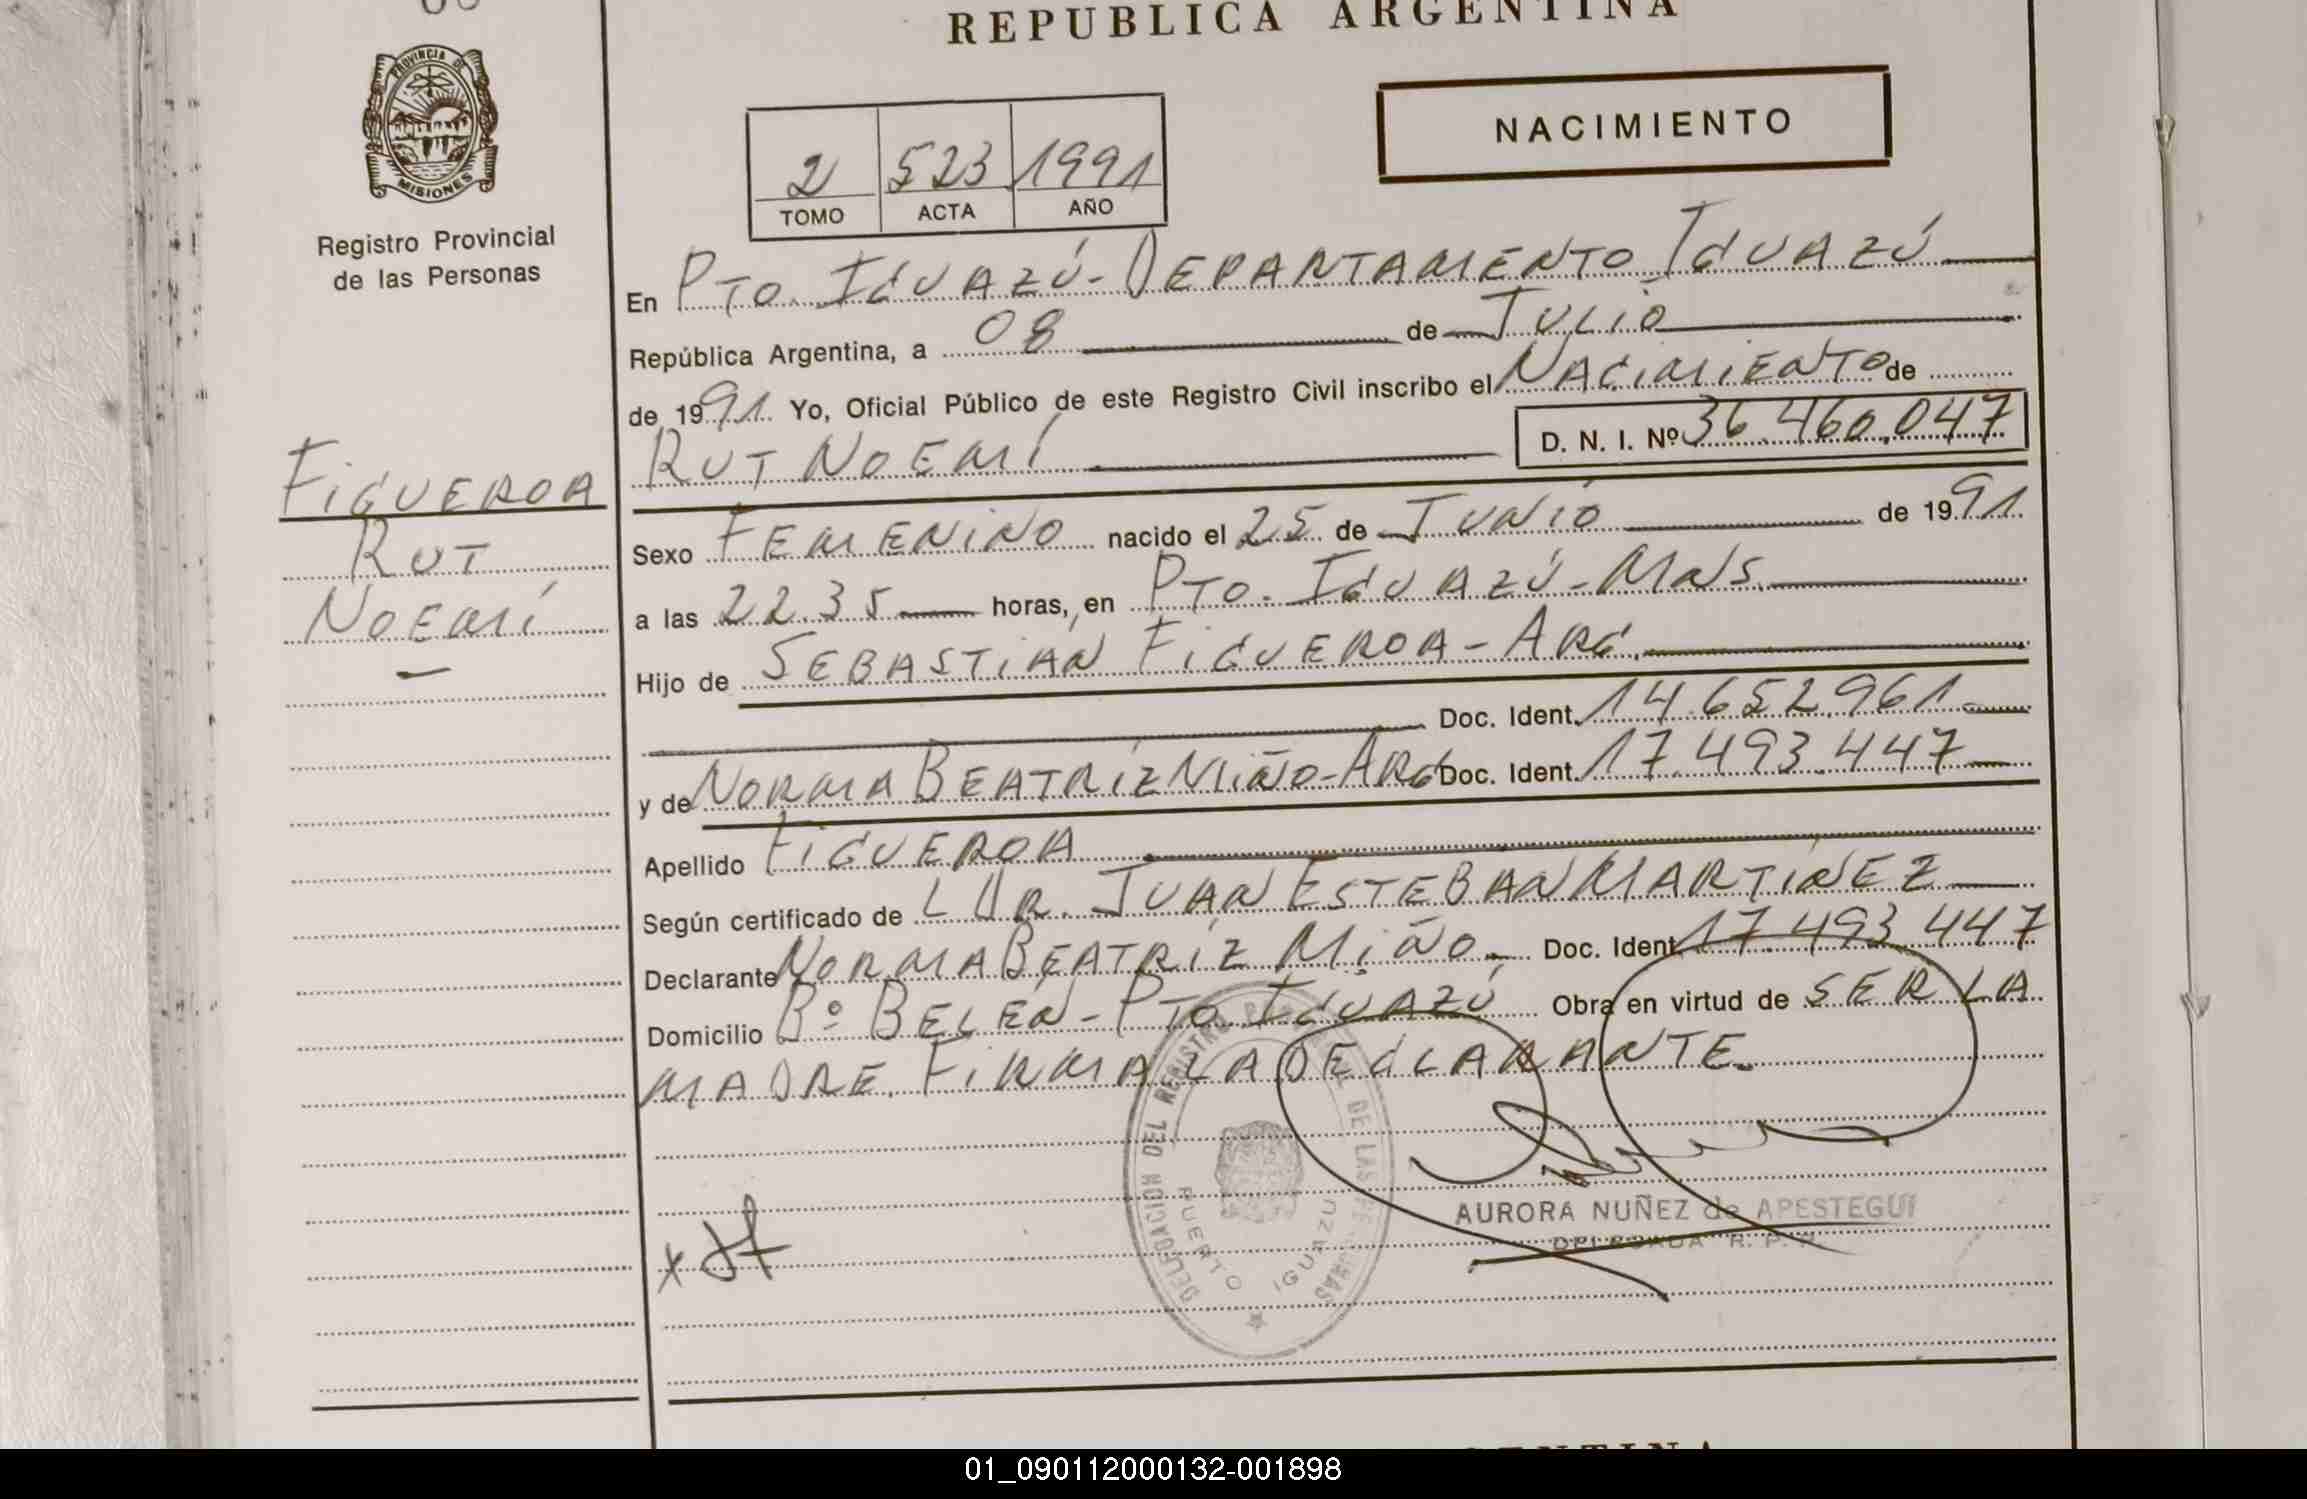 REPUBLICA ARGENTINA
PROVINCIA DE
MISIONES
Registro Provincial
de las Personas
NACIMIENTO
2 523 1991
TOMO ACTA AÑO
En PTO. IGUAZÚ - DEPARTAMENTO IGUAZÚ
República Argentina, a 08 de JULIO
de 1991. Yo, Oficial Público de este Registro Civil inscribo el NACIMIENTO de
RUT NOEMÍ D. N. I. Nº 36.460.047
FIGUEROA
RUT
NOEMÍ
Sexo FEMENINO nacido el 25 de JUNIO de 1991.
a las 22.35 horas, en PTO. IGUAZÚ - MNS.
Hijo de SEBASTIÁN FIGUEROA - ARG.
Doc. Ident. 14.652.961
y de NORMA BEATRÍZ MIÑO - ARG Doc. Ident. 17.493.447
Apellido FIGUEROA
Según certificado de L DR. JUAN ESTEBAN MARTÍNEZ
Declarante NORMA BEATRÍZ MIÑO. Doc. Ident. 17.493.447
Domicilio Bº BELÉN - PTO IGUAZÚ Obra en virtud de SER LA
MADRE. FIRMA LA DECLARANTE.
DELEGACION DEL REGISTRO DE LAS
PUERTO IGUAZU
AURORA NUÑEZ de APESTEGUI
DELEGADA R. P. P.
x
01_090112000132-001898